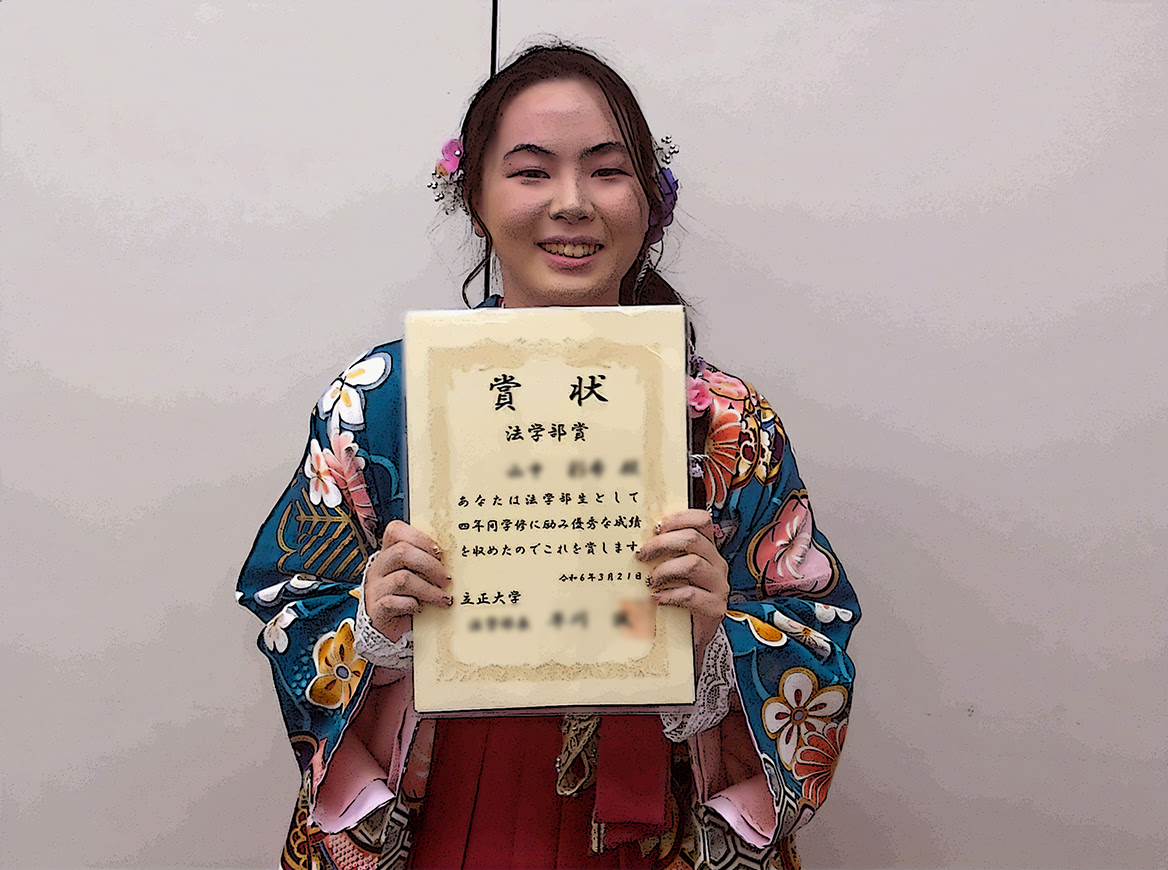 賞 状
法学部賞
あなたは法学部生として
四年间学修に励み優秀な成績
を収めたのでこれを賞します
令和6年3月21日
立正大学